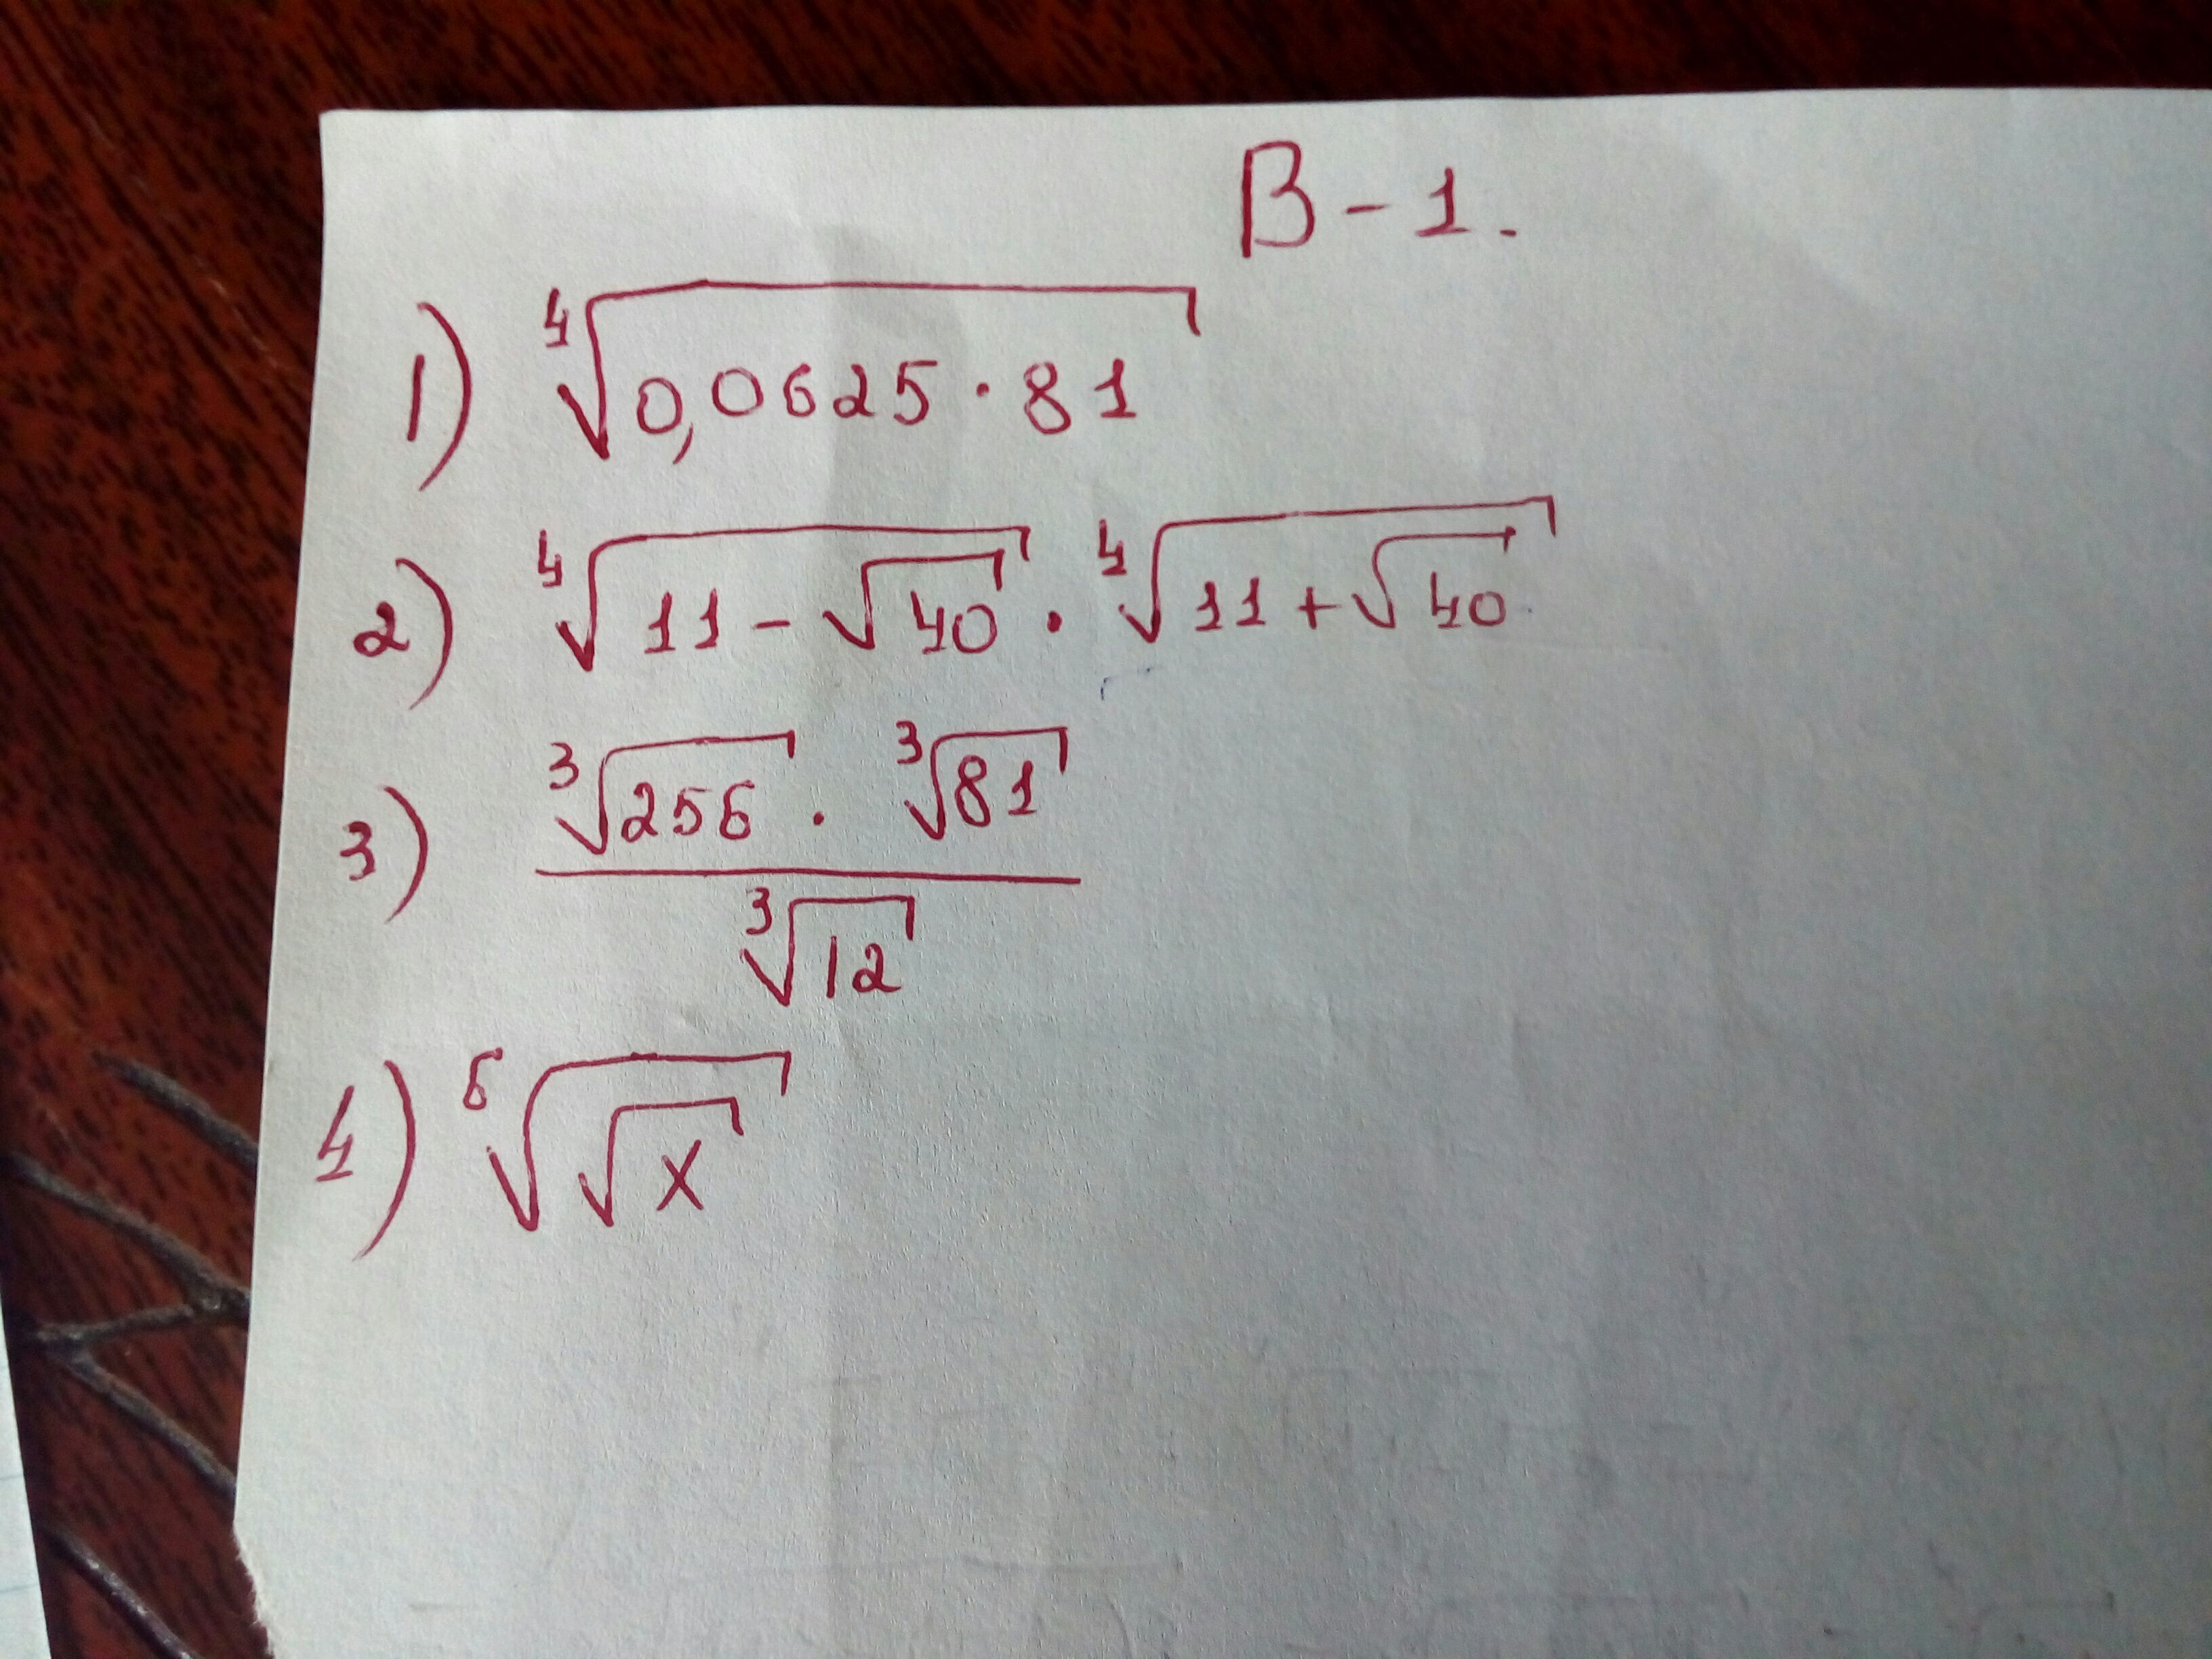 В-1.
1) ⁴√(0,0625 · 81)
2) ⁴√(11 - √40) · ⁴√(11 + √40)
3) (³√256 · ³√81) / ³√12
4) ⁶√(√x)